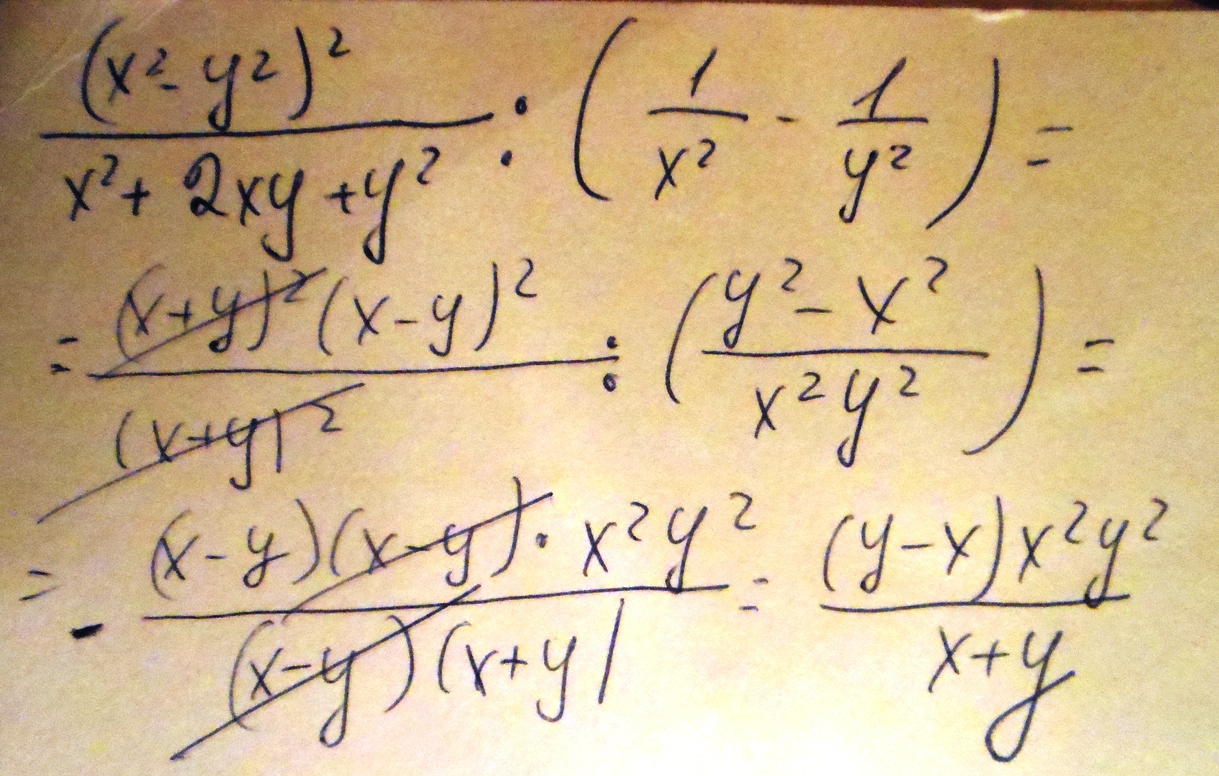 (x²-y²)²/(x²+2xy+y²) : (1/x² - 1/y²) =
= (x+y)²(x-y)²/(x+y)² : ((y²-x²)/(x²y²)) =
= - (x-y)(x-y)·x²y²/((x-y)(x+y)) = (y-x)x²y²/(x+y)